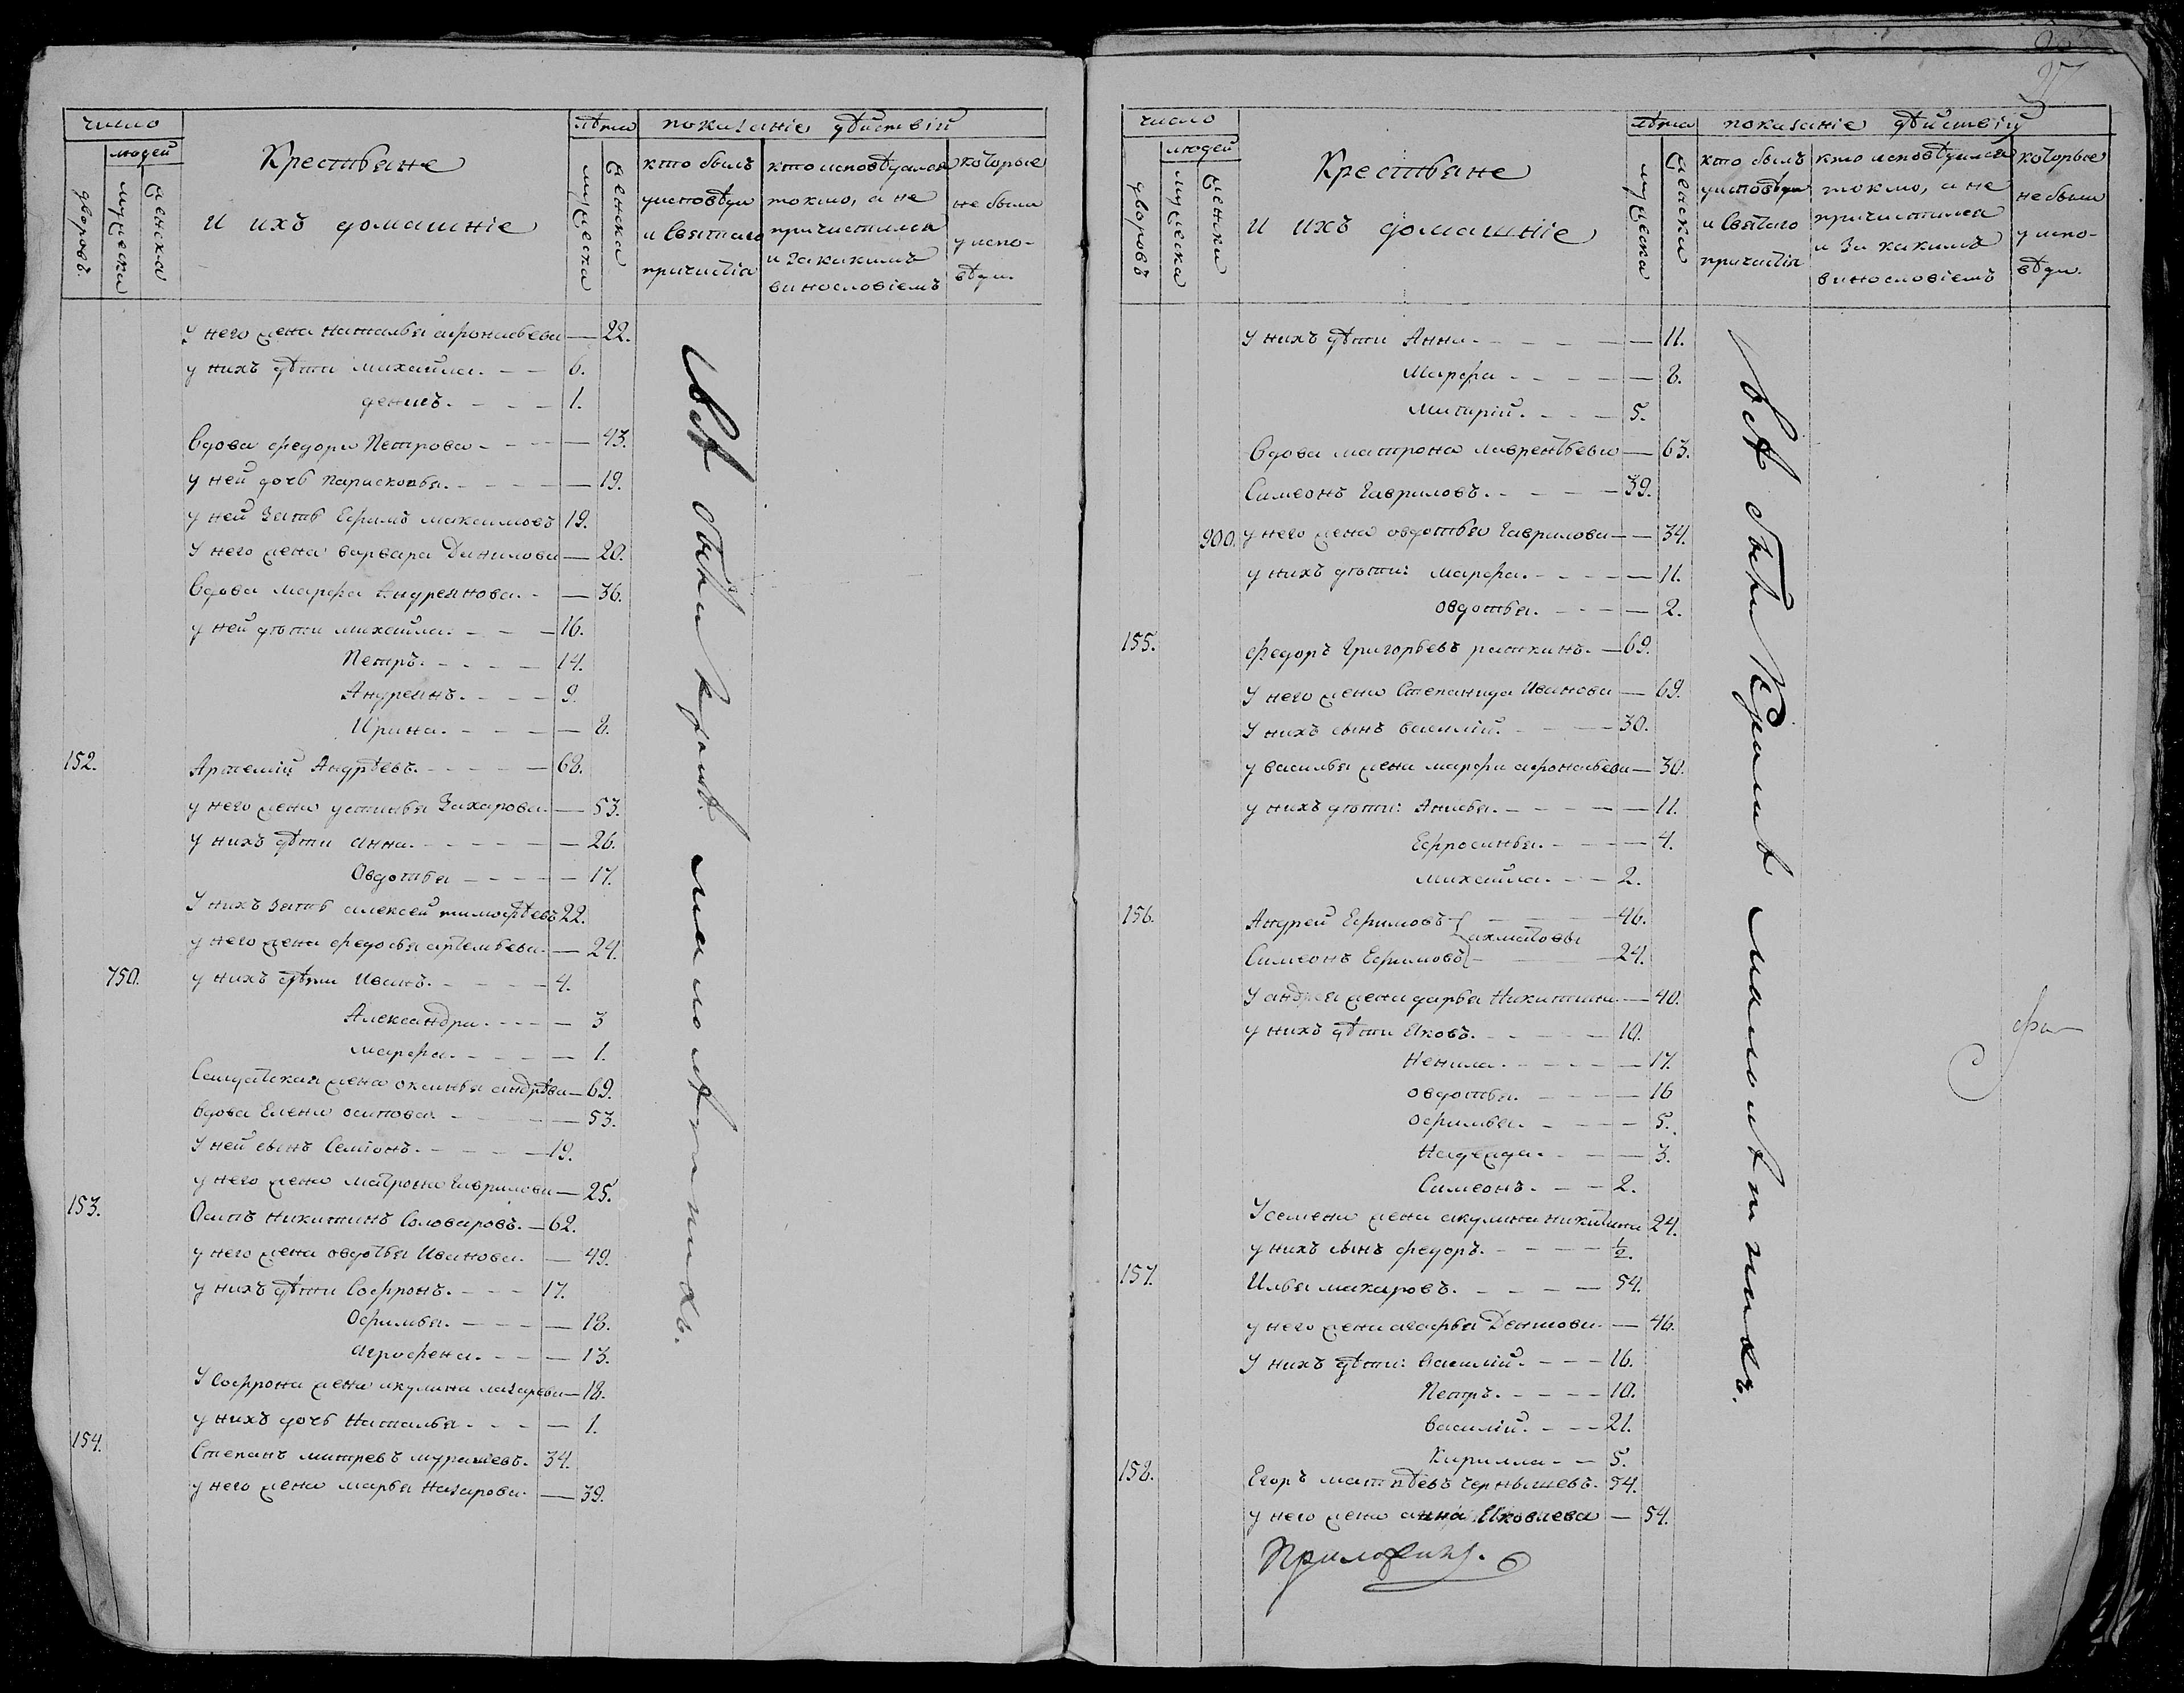 число
людей
дворовъ.
мужеска
женска
Крестьяне
и ихъ домашніе
лѣта
мужеска
женска
показаніе дѣйствій
кто былъ
уисповѣди
и Святаго
причастія
кто исповѣдался
токмо, а не
причастился
и закакимъ
винословіемъ
которые
не были
у испо-
вѣди.
у него жена наталья афонасьева — 22.
у нихъ дѣти михайла. 6.
денисъ. 1.
Вдова федора Петрова — 43.
у ней дочь парасковья. — 19.
у ней зять Ефимъ максимовъ 19.
У него жена варвара Данилова — 20.
Вдова марфа Андреянова. — 36.
у ней дѣти михайла. — 16.
Петръ. — 14.
Андреянъ. — 9.
Ирина. — 8.
152.
Артемій Андрѣевъ. — 68.
у него жена устинья Захарова. — 53.
у нихъ дѣти анна. — 26.
Овдотья — 17.
У нихъ зять алексей тимофѣевъ 22.
у него жена федосья артемьева. — 24.
750. у нихъ дѣти Иванъ. — 4.
Александра. — 3
марфа. — 1.
Салдатская жена оксинья андрѣева — 69.
вдова Елена осипова — 53.
У ней сынъ Семіонъ. — 19.
у него жена матрона гаврилова — 25.
153.
Осипъ никитинъ Соловаровъ. — 62.
у него жена овдотья Иванова. — 49.
у нихъ дѣти Софронъ. 17.
Офимья. — 18.
агрофена. — 13.
У Софрона жена акулина назарова — 18.
у нихъ дочь наталья — 1.
154.
Степанъ митревъ мурашевъ. 34.
у него жена марья назарова. — 39.
всѣ были кромѣ малолѣтнихъ.
27
число
людей
дворовъ
мужеска
женска
Крестьяне
и ихъ домашніе
лѣта
мужеска
женска
показаніе дѣйствій
кто былъ
уисповѣди
и Святаго
причастія
кто исповѣдался
токмо, а не
причастился
и за какимъ
винословіемъ
которые
не были
у испо-
вѣди.
У нихъ дѣти Анна. — 11.
Марфа — 8.
Митрій. — 5.
Вдова матрона лаврентьева — 63.
Симеонъ Гавриловъ. — 39.
900. у него жена овдотья Гаврилова — 34.
у нихъ дѣти: марфа. — 11.
овдотья. — 2.
155.
Федоръ Григорьевъ раткинъ. — 69.
У него жена Степанида Иванова — 69.
У нихъ сынъ василій. — 30.
у василья жена марфа афонасьева — 30.
у нихъ дѣти: Анисья. — 11.
Ефросинья. — 4.
михайла. — 2.
156.
Андрей Ефимовъ — 46.
ахматовы
Симеонъ Ефимовъ — 24.
У андрея жена дарья Никитина — 40.
у нихъ дѣти Яковъ. — 10.
Ненила. — 17.
овдотья. — 16
офимья. — 5.
Надежда. — 3.
Симеонъ. — 2.
У семена жена акулина никитина 24.
у нихъ сынъ федоръ. — ½.
157.
Илья макаровъ. — 54.
у него жена агафья Денисова. — 46.
У нихъ дѣти: Василій. — 16.
Петръ. — 10.
василій. — 21.
Кирилла — 5.
158.
Егоръ матвѣевъ Чернышевъ. 54.
у него жена анна Яковлева — 54.
всѣ были кромѣ малолѣтнихъ.